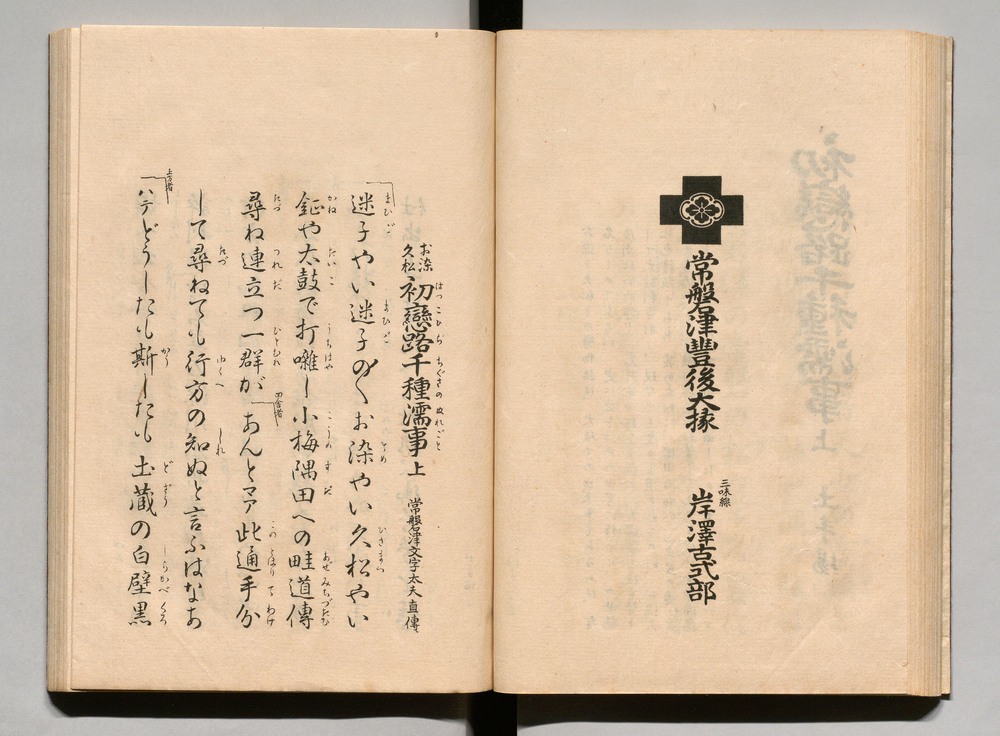 常磐津豐後大掾
三味線 岸澤古式部
お染久松 初戀路千種濡事 上 常磐津文字太夫直傳
迷子やい迷子の〱お染やい久松やい
鉦や太鼓で打囃し小梅隅田への畦道傳
尋ね連立つ一群が 田舎者 あんとマア此通手分
して尋ねても行方の知ぬと言ふはなあ
上方者 ハテどうしたも斯したも土蔵の白壁黒